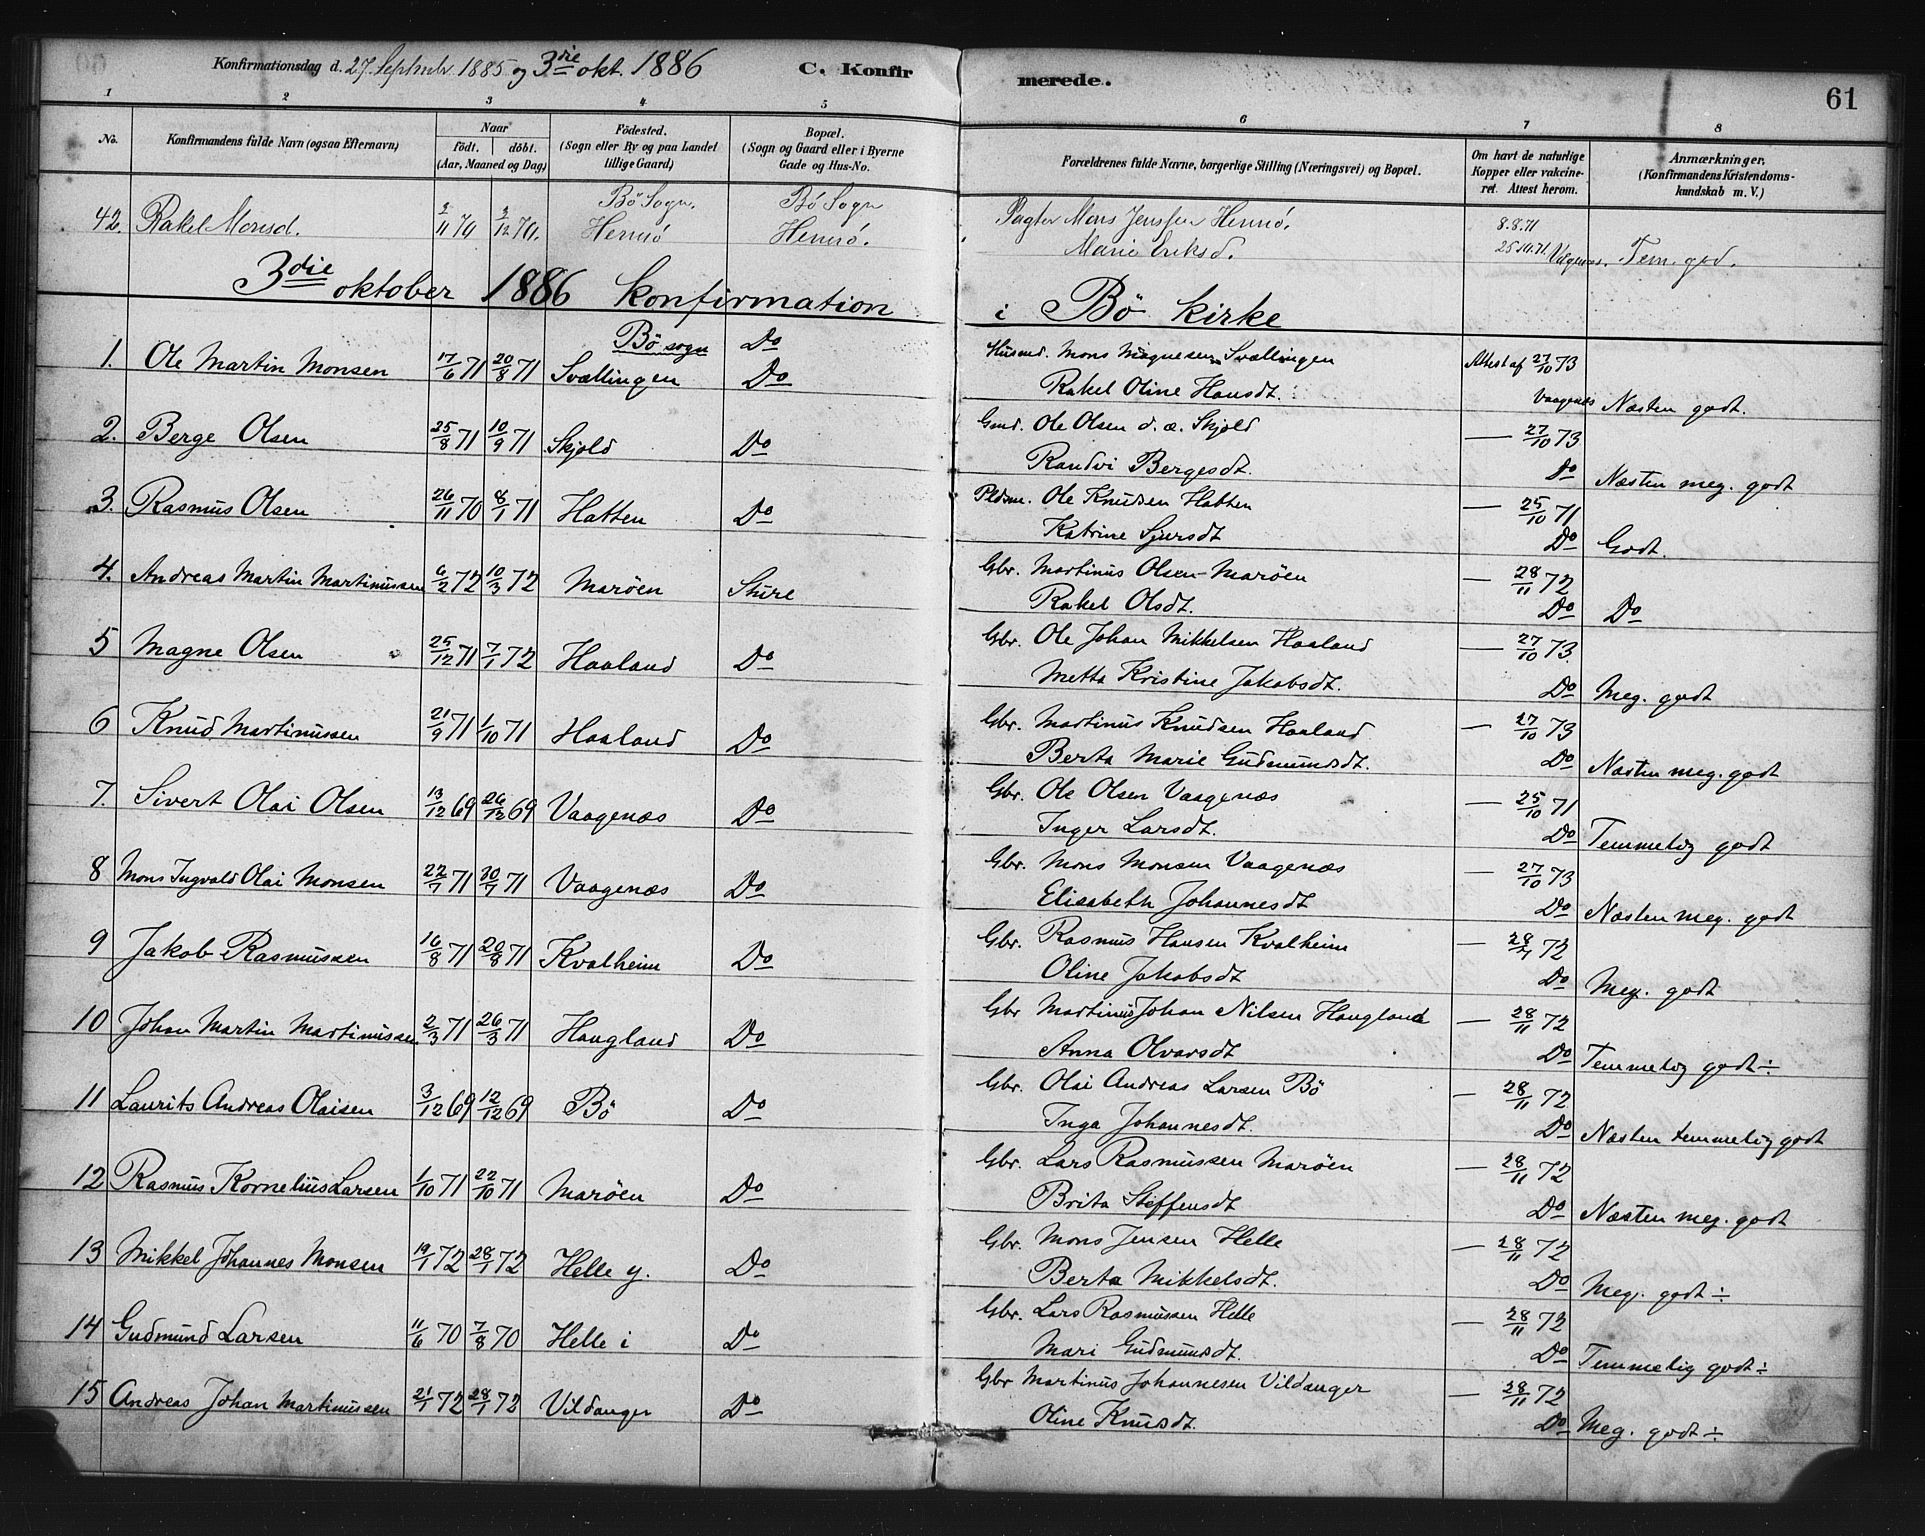 Konfirmationsdag d. 27. Septmbr. 1885 og 3die okt. 1886 C. Konfirmerede. 61
1 2 3 4 5 6 7 8
No. Konfirmandens fulde Navn (ogsaa Efternavn) Naar Födt. döbt. (Aar, Maaned og Dag) Födested. (Sogn eller By og paa Landet tillige Gaard) Bopæl. (Sogn og Gaard eller i Byerne Gade og Hus-No. Forældrenes fulde Navne, borgerlige Stilling (Næringsvei) og Bopæl. Om havt de naturlige Kopper eller vakcineret. Attest herom. Anmærkninger, (Konfirmandens Kristendomskundskab m. V.)
Bö Sogn. Bö Sogn 8.8.71
42. Rakel Monsd. 2/11 70 2/12 70. Hennö Hennö. Pagter Mons Jenssen Hennö.
Marie Eriksd. 25/10.71. Tem. god.
3die oktober 1886 konfirmation i Bö kirke
Bö sogn Do
1. Ole Martin Monsen 17/6 71 20/8 71 Svællingen Do Husmd. Mons Magnesen Svællingen Attest af 27/10 73
Rakel Oline Hansdt. Vaagenæs Næsten godt.
2. Berge Olsen 25/8 71 10/9 71 Skjold Do Gmd. Ole Olsen d. æ. Skjold — 27/10 73
Randvi Bergesdt. Do Næsten meg. godt
3. Rasmus Olsen 26/11 70 8/1 71 Hatten Do Pldsm. Ole Knudsen Hatten — 25/10 71
Katrine Sjursdt Do Godt.
4. Andreas Martin Martinussen 6/2 72 10/3 72 Maröen Sture Gbr. Martinus Olsen Maröen — 28/11 72
Rakel Olsdt. Do Do
5 Magne Olsen 25/12 71 7/1 72 Haaland Do Gbr. Ole Johan Mikkelsen Haaland — 27/10 73.
Metta Kristine Jakobsdt. Do Meg. godt
6 Knud Martinussen 21/9 71 1/10 71 Haaland Do Gbr. Martinus Knudsen Haaland — 27/10 73
Berta Marie Gudmundsdt. Do Næsten meg. godt
7. Sivert Olai Olsen 13/12 69 26/12 69 Vaagenæs Do Gbr. Ole Olsen Vaagenæs — 25/10 71
Inger Larsdt. Do Temmelig godt
8 Mons Ingvald Olai Monsen 22/7 71 30/7 71 Vaagenæs Do Gbr. Mons Monsen Vaagenæs — 27/10 73
Elisabeth Johannesdt Do Næsten meg. godt
9 Jakob Rasmussen 16/8 71 20/8 71 Kvalheim Do Gbr. Rasmus Hansen Kvalheim — 28/7 72
Oline Jakobsdt Do Meg. godt
10 Johan Martin Martinussen 2/3 71 26/3 71 Haugland Do Gbr Martinus Johan Nilsen Haugland — 28/11 72
Anna Olvarsdt Do Temmelig godt ÷
11 Laurits Andreas Olaisen 3/12 69 12/12 69 Bö Do Gbr. Olai Andreas Larsen Bö — 28/11 72
Inga Johannesdt. Do Næsten temmelig godt
12 Rasmus Kornelius Larsen 1/10 71 22/10 71 Maröen Do Gbr. Lars Rasmussen Maröen — 28/11 72
Brita Steffensdt Do Næsten meg. godt
13 Mikkel Johannes Monsen 19/1 72 28/1 72 Helle y. Do Gbr. Mons Jensen Helle — 28/11 72
Berta Mikkelsdt. Do Meg. godt ÷
14 Gudmund Larsen 11/6 70 7/8 70 Helle i Do Gbr. Lars Rasmussen Helle — 28/11 72
Mari Gudmundsdt. Do Temmelig godt ÷
15 Andreas Johan Martinussen 21/1 72 28/1 72 Vildanger Do Gbr Martinus Johannesen Vildanger — 28/11 72
Oline Knudsdt. Do Meg. godt ÷